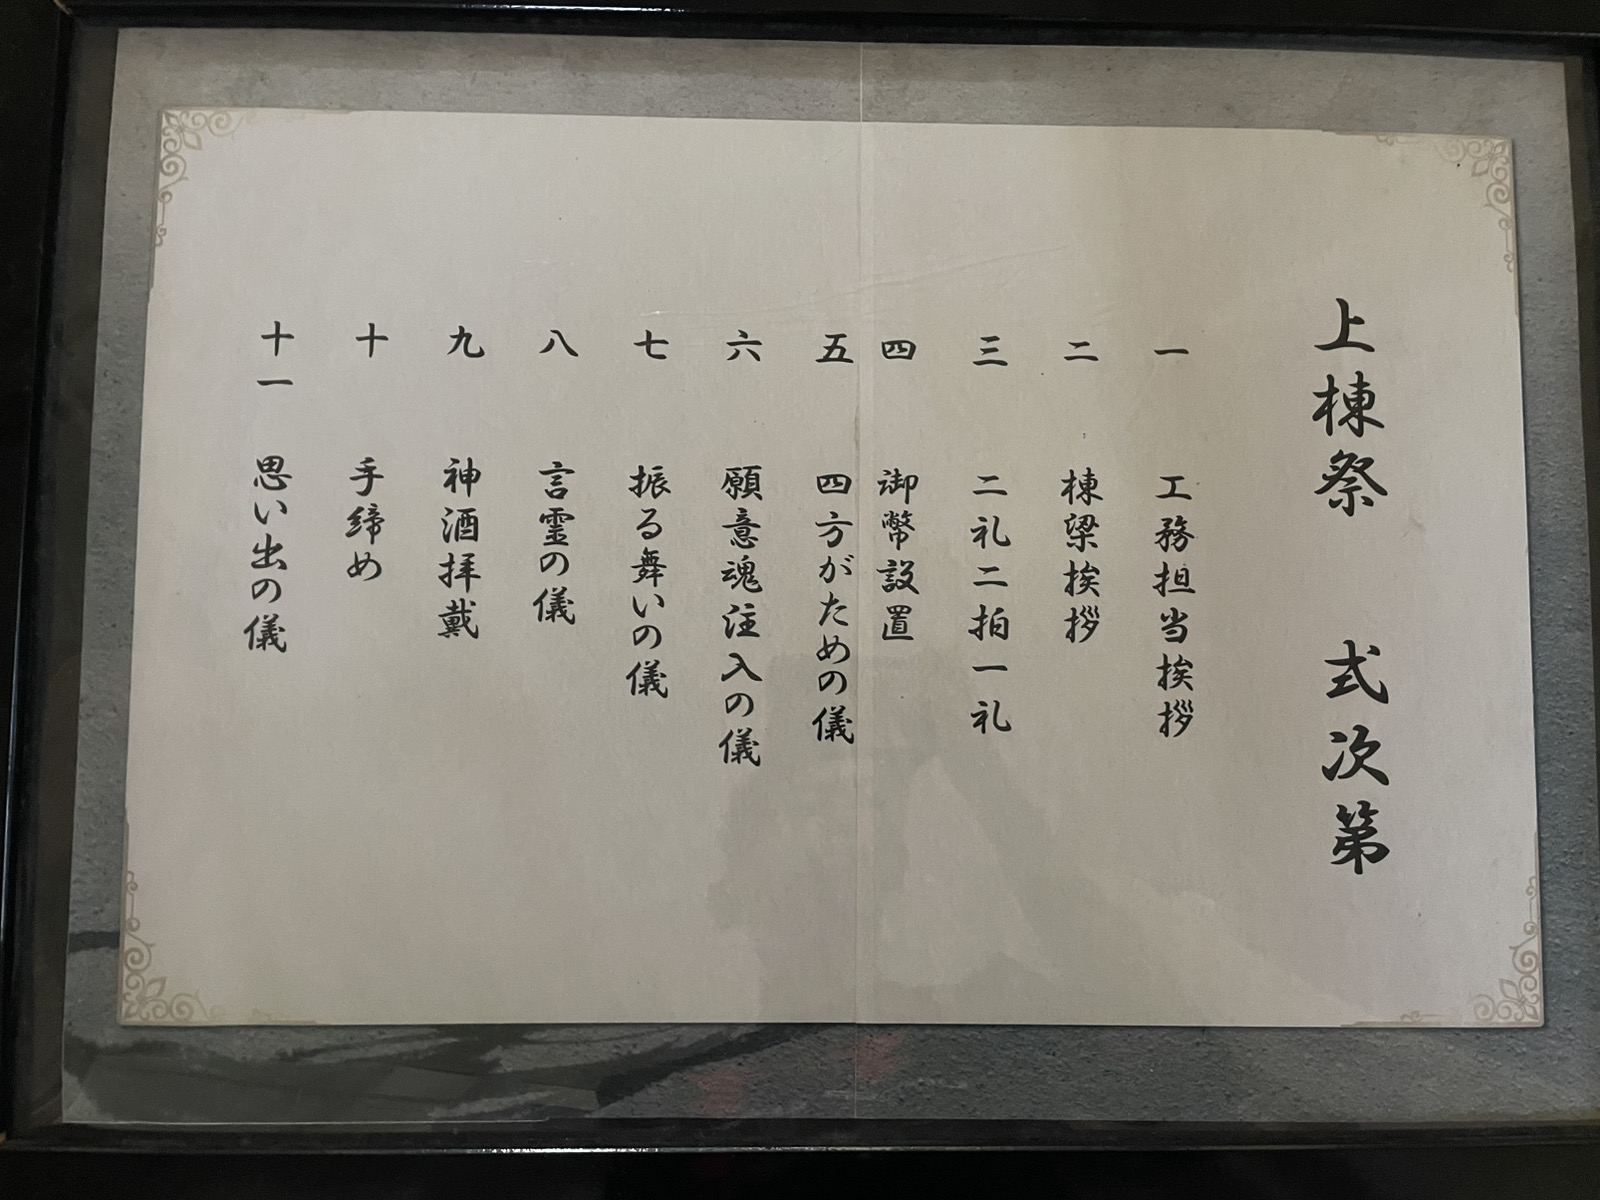 上棟祭　式次第
一　工務担当挨拶
二　棟梁挨拶
三　二礼二拍一礼
四　御幣設置
五　四方がための儀
六　願意魂注入の儀
七　振る舞いの儀
八　言霊の儀
九　神酒拝戴
十　手締め
十一　思い出の儀